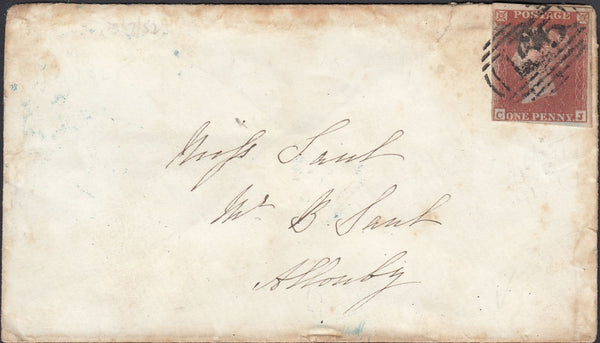 POSTAGE
C ONE PENNY J
Miss Saul
Mr B. Saul
Allonby